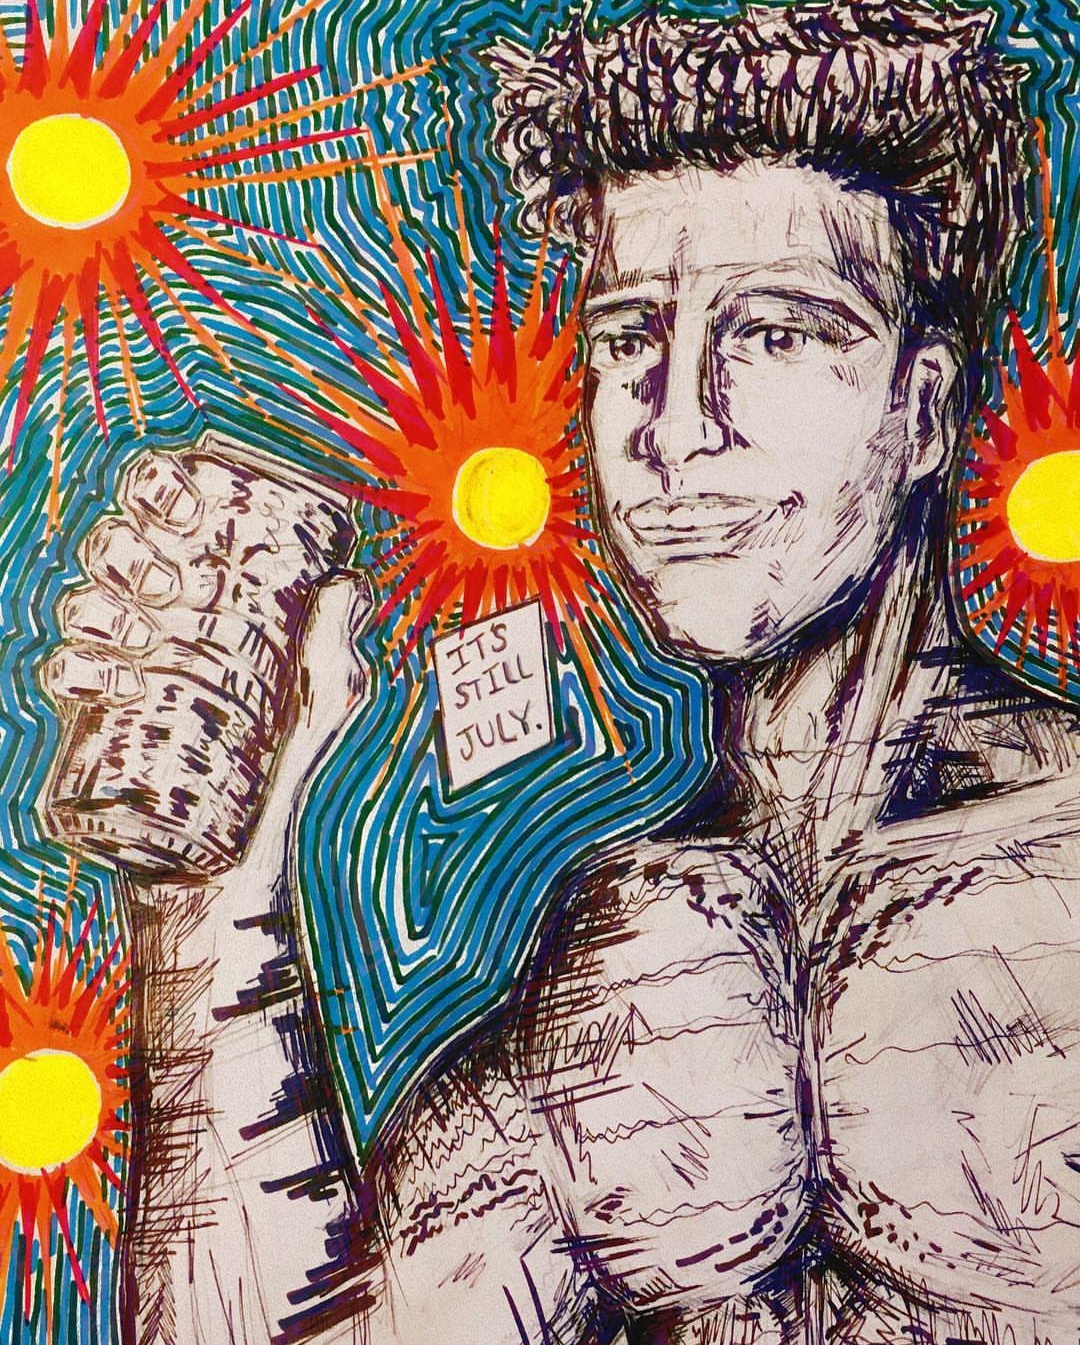 IT'S
STILL
JULY.